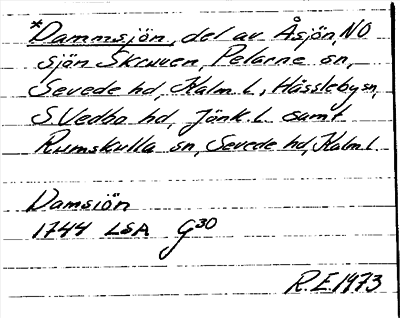 *Dammsjön, del av Åsjön, NO
sjön Skruven, Pelarne sn,
Sevede hd, Kalm. l., Hässleby sn,
S. Vedbo hd, Jönk. l. samt
Rumskulla sn, Sevede hd, Kalm l.
Damsiön
1744 LSA G30
R.E. 1973